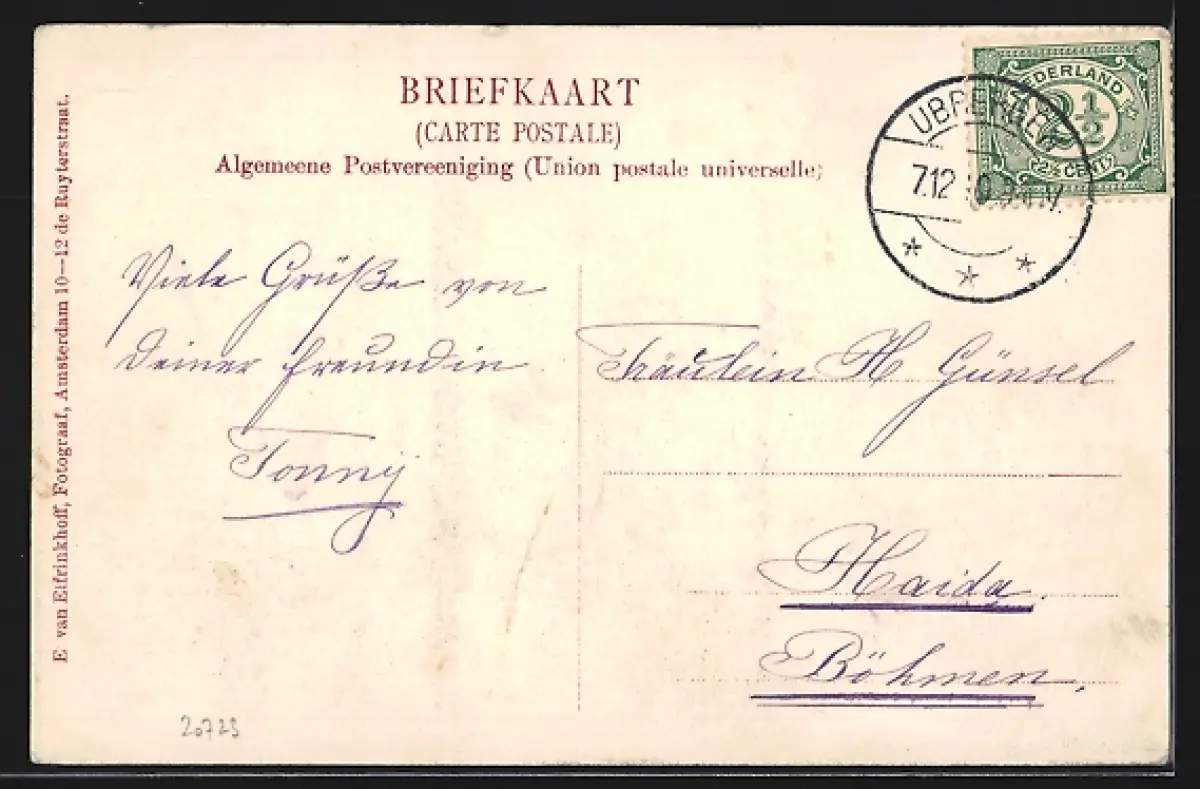 BRIEFKAART
(CARTE POSTALE)
Algemeene Postvereeniging (Union postale universelle)
NEDERLAND
2½
(2½ CENT)
UBBERGEN
7.12
Viele Grüße von
deiner Freundin
Tonny
Fräulein H Günsel
Haida
Böhmen.
E van Eifrinkhoff, Fotograaf, Amsterdam 10—12 de Ruyterstraat.
20723